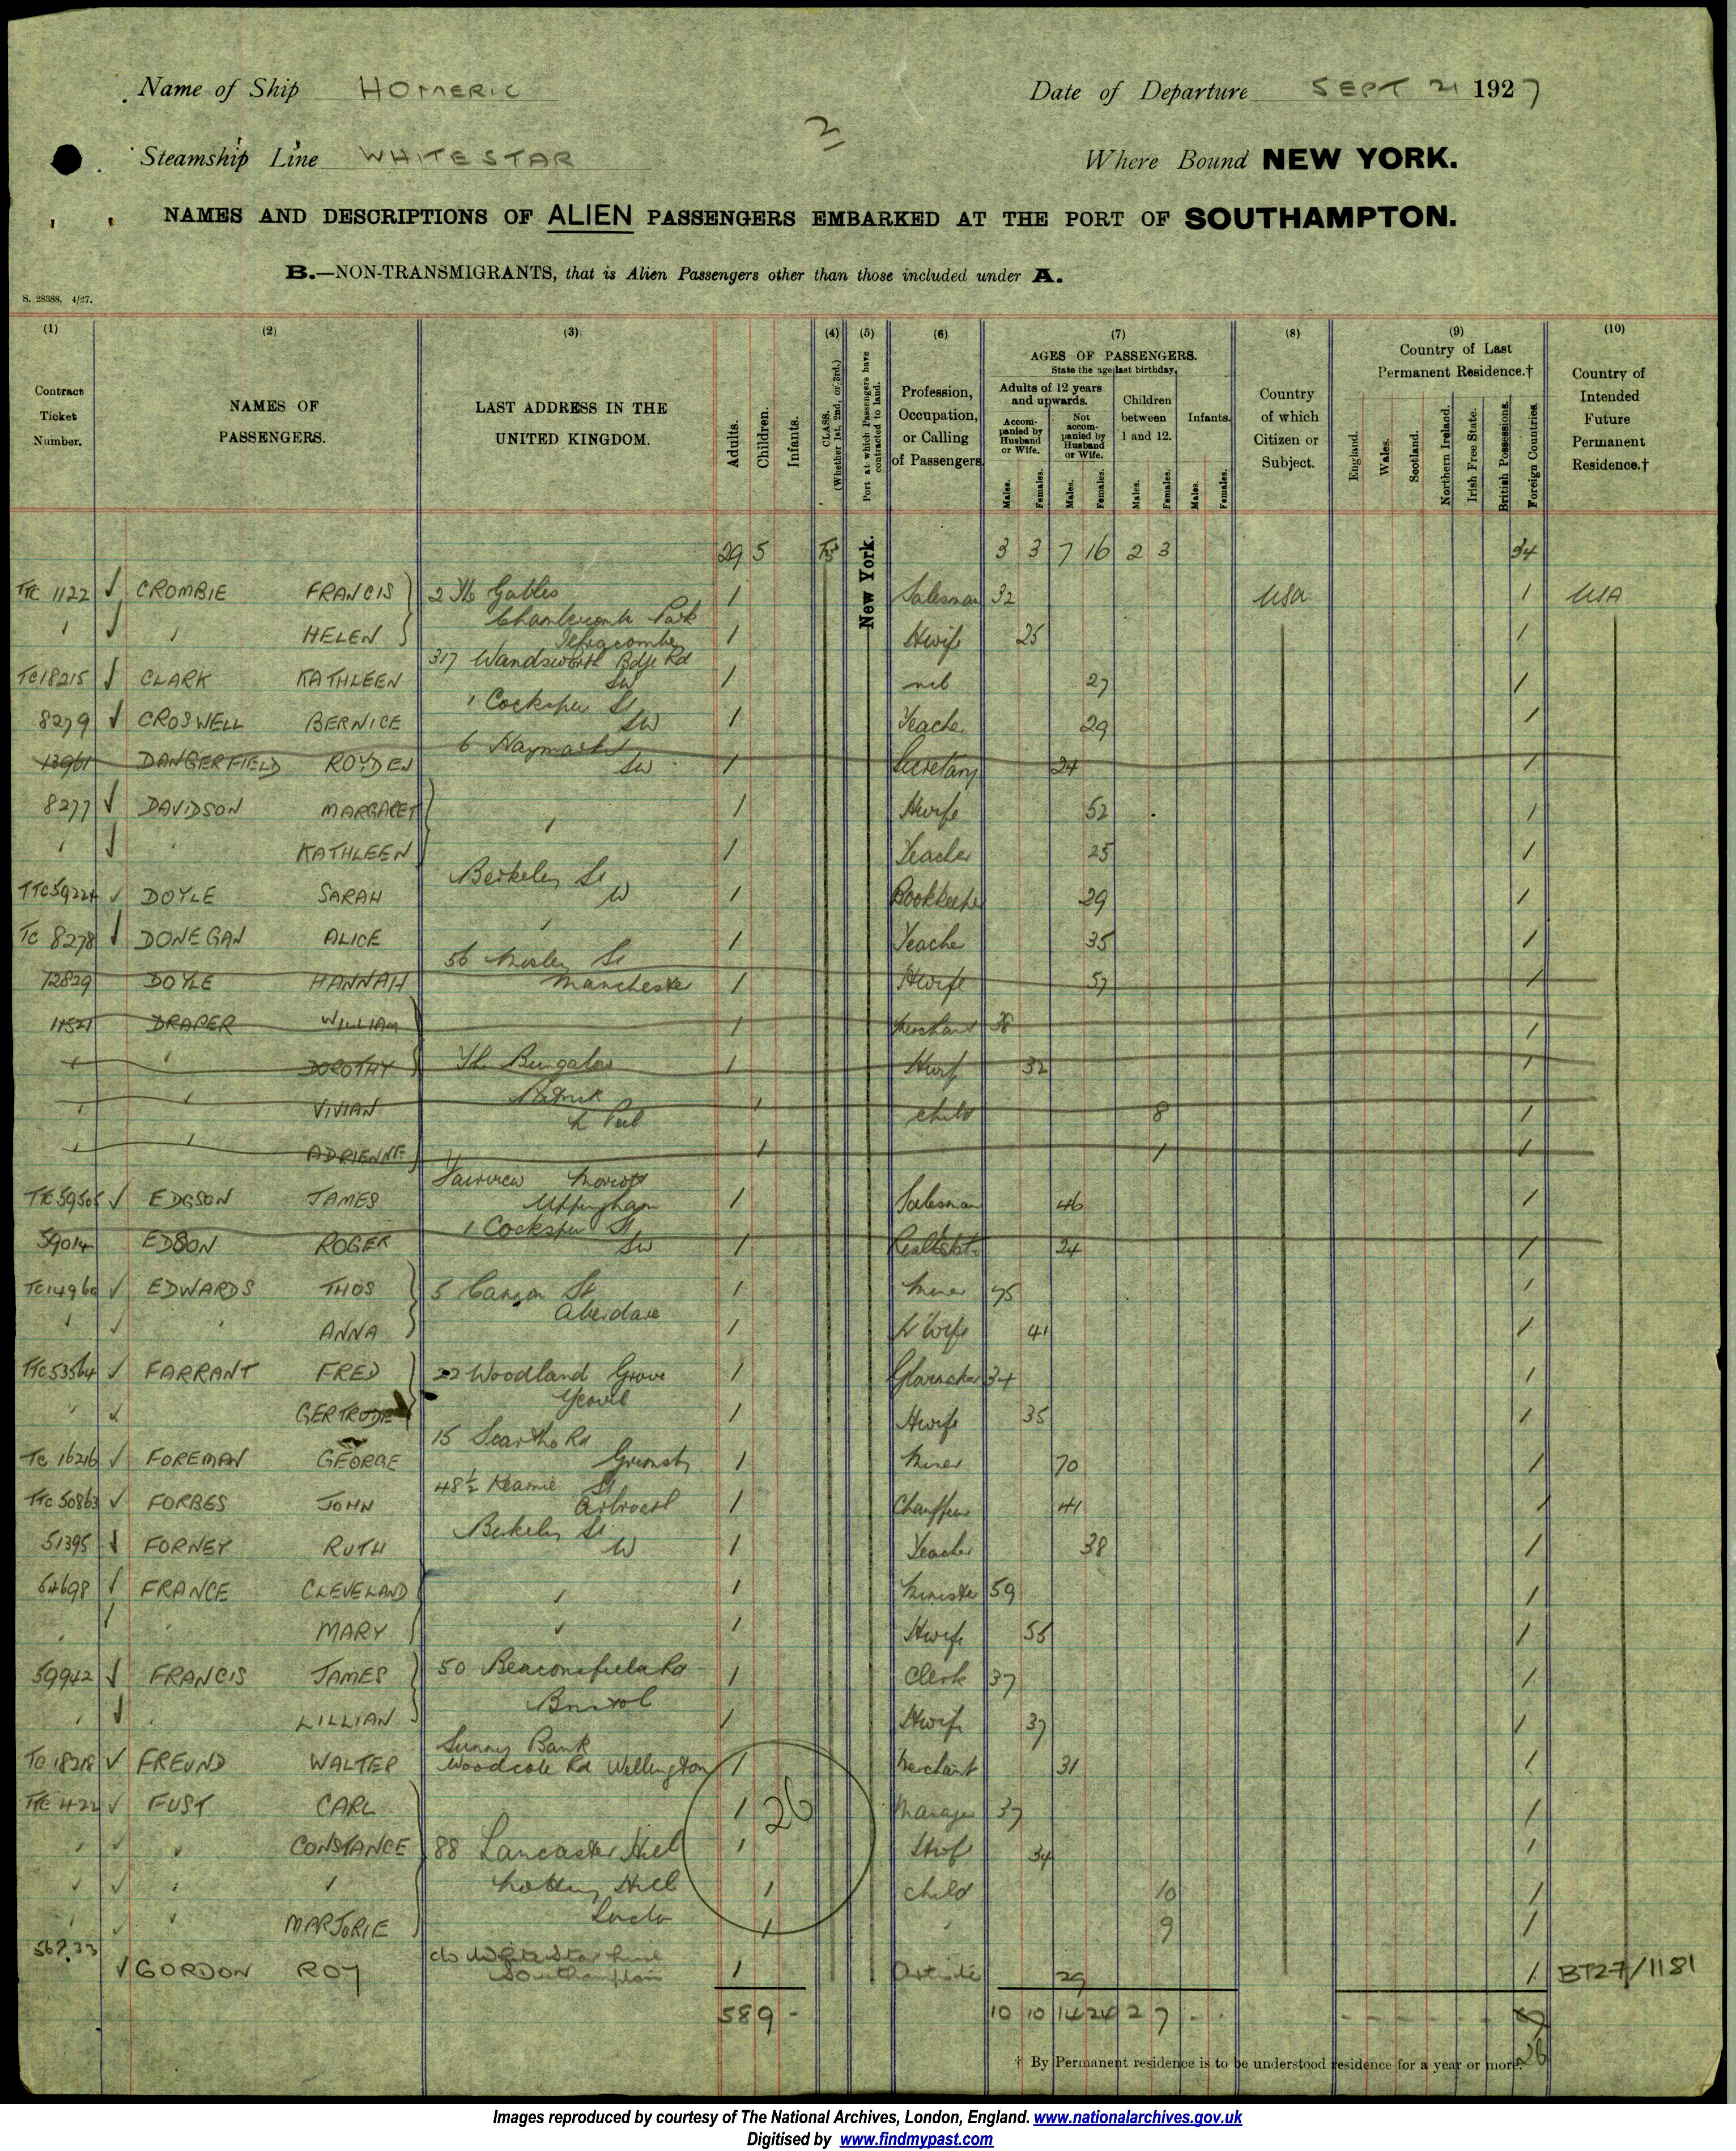 Name of Ship HOMERIC Date of Departure SEPT 21 1927
3
Steamship Line WHITE STAR Where Bound NEW YORK.
NAMES AND DESCRIPTIONS OF ALIEN PASSENGERS EMBARKED AT THE PORT OF SOUTHAMPTON.
B.—NON-TRANSMIGRANTS, that is Alien Passengers other than those included under A.
S. 28388. 4/27.
(1) (2) (3) (4) (5) (6) (7) (8) (9) (10)
Contract Ticket Number.
NAMES OF PASSENGERS.
LAST ADDRESS IN THE UNITED KINGDOM.
Adults. Children. Infants.
CLASS. (Whether 1st, 2nd, or 3rd.)
Port at which Passengers have contracted to land.
Profession, Occupation, or Calling of Passengers.
AGES OF PASSENGERS.
State the age last birthday.
Adults of 12 years and upwards.
Accompanied by Husband or Wife. Not accompanied by Husband or Wife.
Children between 1 and 12. Infants.
Males. Females. Males. Females. Males. Females. Males. Females.
Country of which Citizen or Subject.
Country of Last Permanent Residence.†
England. Wales. Scotland. Northern Ireland. Irish Free State. British Possessions. Foreign Countries.
Country of Intended Future Permanent Residence.†
29 5 New York. 3 3 7 16 2 3 34
TTC 1122 CROMBIE FRANCIS 2 The Gables 1 Salesman 32 USA 1 USA
Chambercomb Park
HELEN Ilfracombe 1 Hwife 25 1
317 Wandsworth Bdge Rd
TC18215 CLARK KATHLEEN SW 1 nil 27 1
1 Cockspur St
8279 CROSWELL BERNICE SW 1 Teacher 29 1
6 Haymarket
13961 DANGERFIELD ROYDEN SW 1 Secretary 24 1
8277 DAVIDSON MARGARET 1 Hwife 52 1
KATHLEEN 1 Teacher 25 1
Berkeley St
TTC59224 DOYLE SARAH W 1 Bookkeeper 29 1
TC 8278 DONEGAN ALICE 1 Teacher 35 1
56 Mosley St
12829 DOYLE HANNAH Manchester 1 Hwife 57 1
11521 DRAPER WILLIAM 1 Merchant 38 1
DOROTHY The Bungalow 1 Hwif 32 1
VIVIAN 1 child 8 1
ADRIENNE 1 1 1
Fairview Morcott
TTC59505 EDGSON JAMES Uppingham 1 Salesman 46 1
1 Cockspur St
59014 EDSON ROGER SW 1 Real Estate 24 1
TC14960 EDWARDS THOS 5 St 1 Miner 45 1
Aberdare
ANNA 1 H Wife 41 1
TTC53564 FARRANT FRED 22 Woodland Grove 1 Glovemaker 34 1
Yeovil
GERTRUDE 1 Hwife 35 1
15 Scartho Rd
TC 16216 FOREMAN GEORGE Grimsby 1 Miner 70 1
48½ St
TTC 50863 FORBES JOHN Arbroath 1 Chauffeur 41 1
Berkeley St
51395 FORNEY RUTH W 1 Teacher 38 1
64698 FRANCE CLEVELAND 1 Minister 59 1
MARY 1 Hwife 55 1
59942 FRANCIS JAMES 50 Beaconsfield Rd 1 Clerk 37 1
Bristol
LILLIAN 1 Hwife 37 1
Sunny Bank
TC 18218 FREUND WALTER Woodcote Rd Wallington 1 Merchant 31 1
TTC 422 FUST CARL 1 26 Manager 37 1
CONSTANCE 88 Lancaster 1 Hwif 34 1
Notting Hill 1 child 10 1
MARJORIE London 1 9 1
56733 GORDON ROY c/o White Star Line 1 29 1 BT27/1181
Southampton
58 9 - 10 10 14 24 2 7 - -
26
† By Permanent residence is to be understood residence for a year or more.
Images reproduced by courtesy of The National Archives, London, England. www.nationalarchives.gov.uk
Digitised by www.findmypast.com